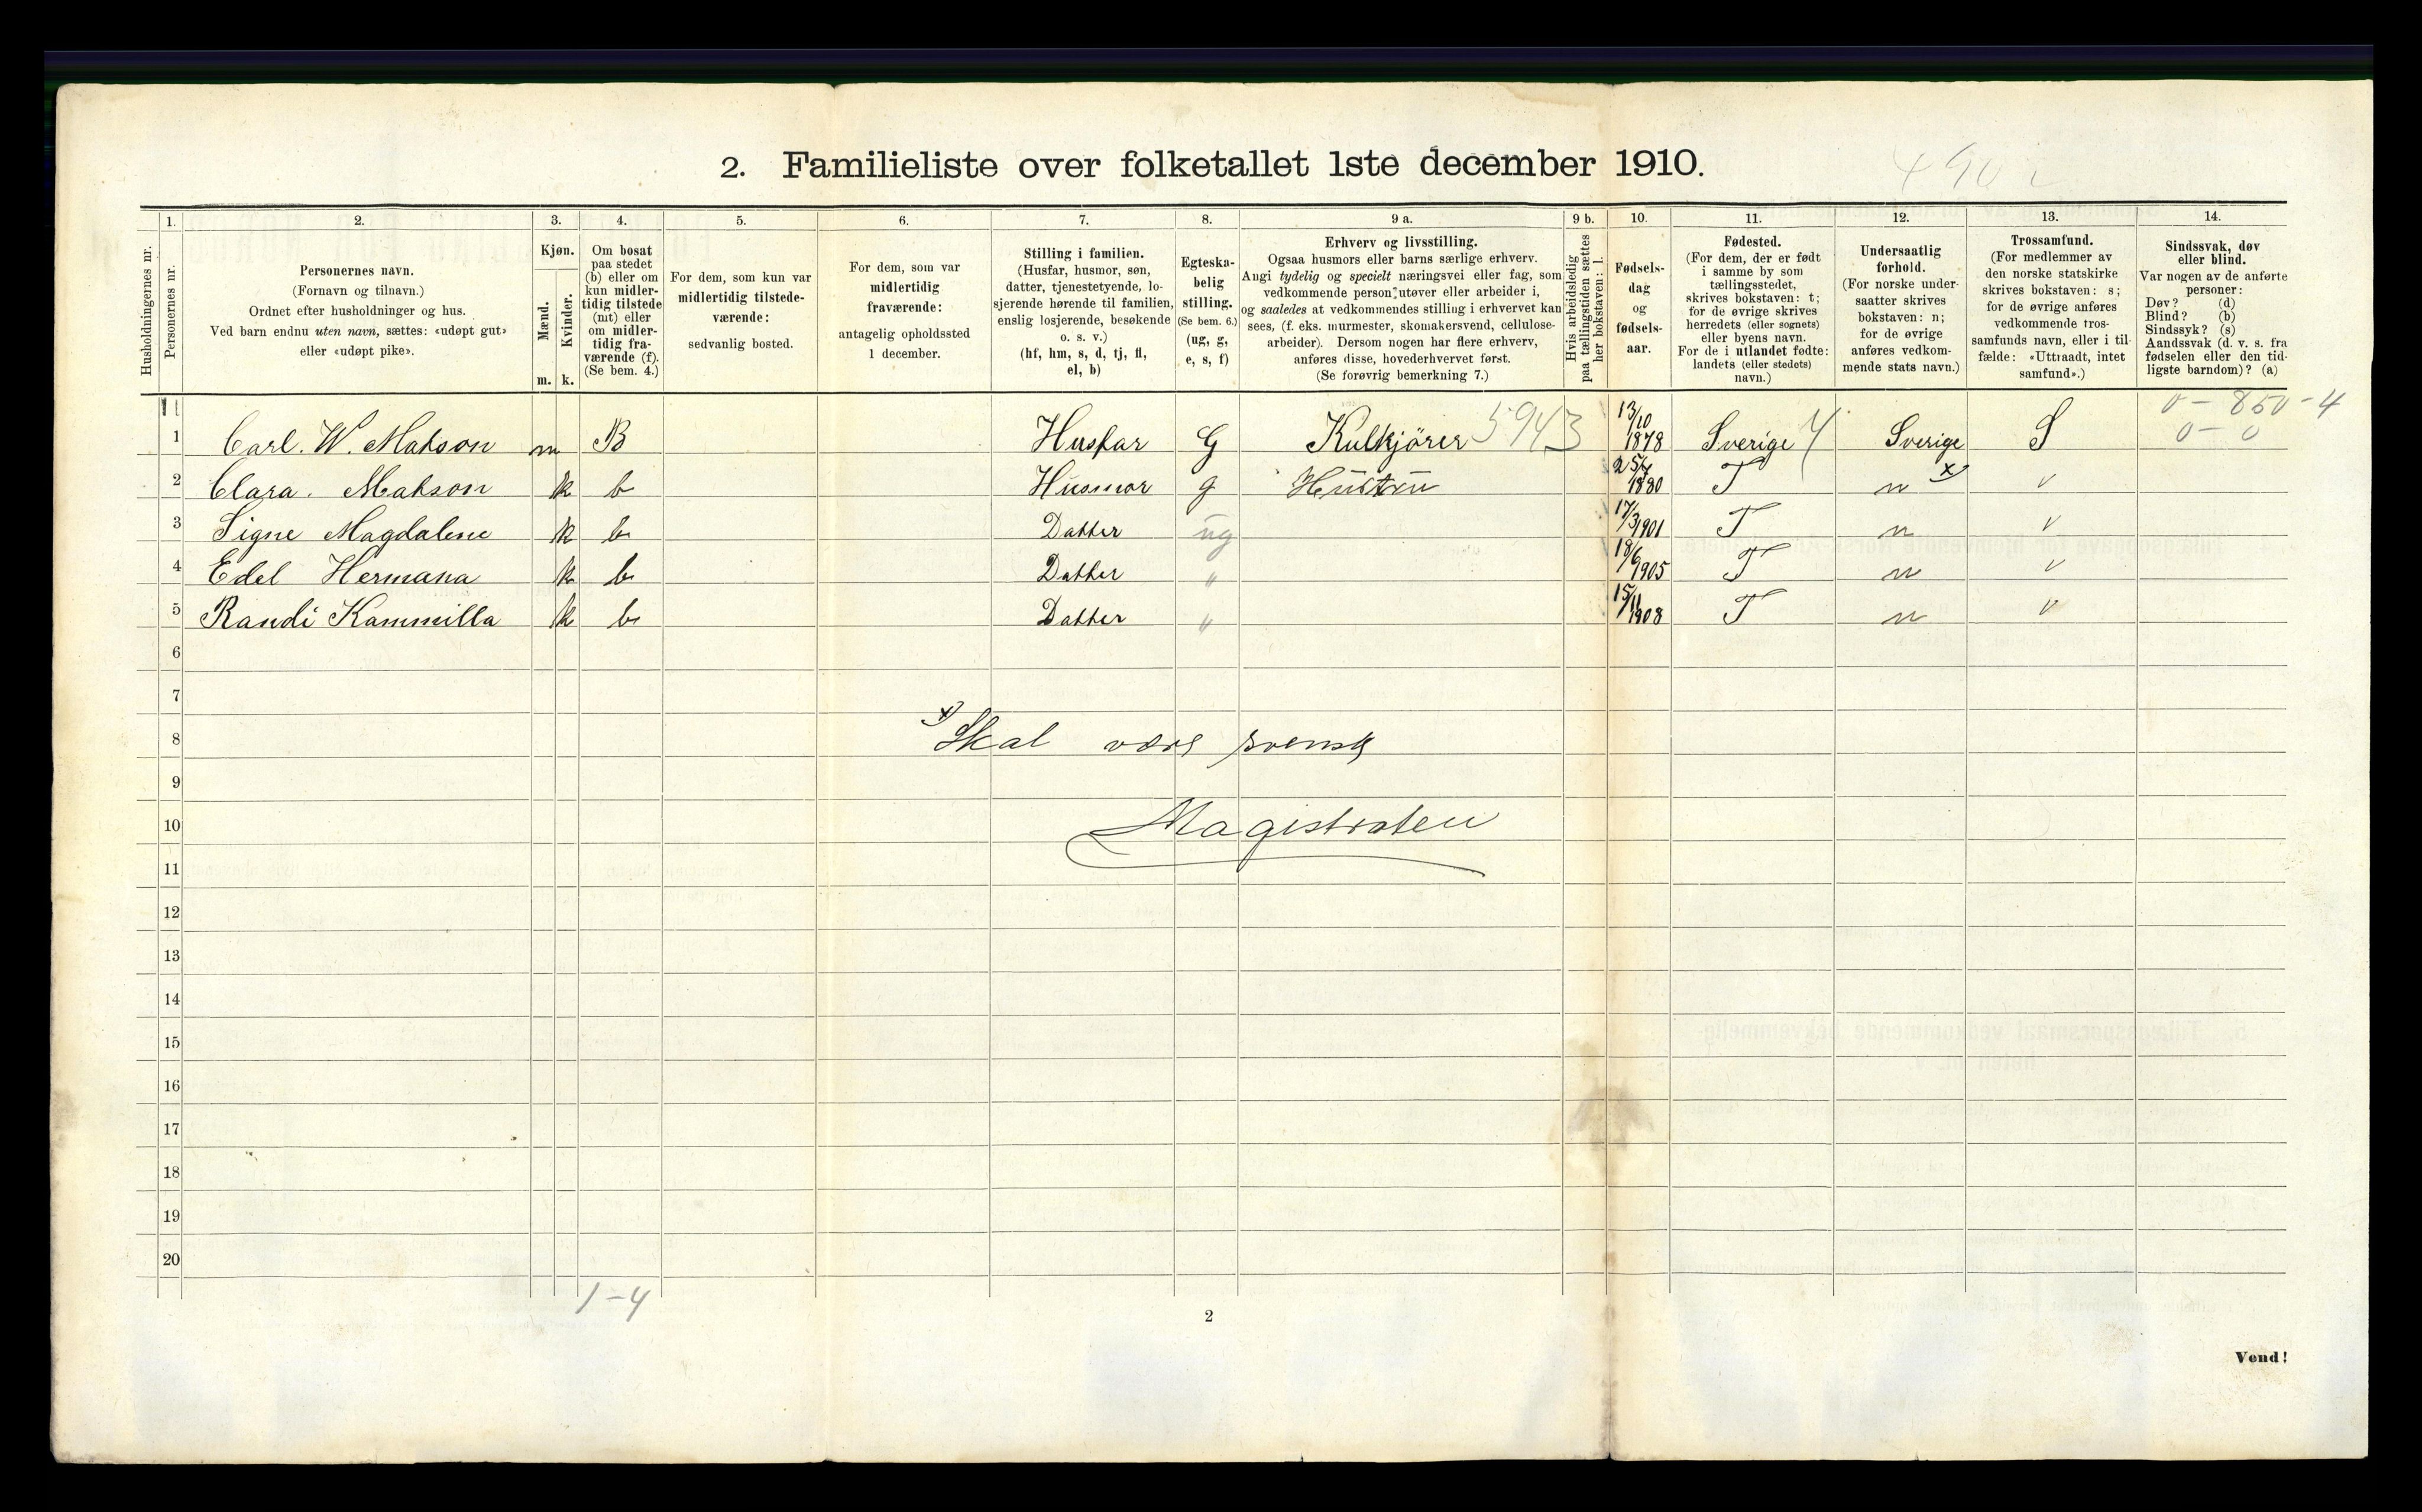 2. Familieliste over folketallet 1ste december 1910.
Husholdningernes nr.
1. Personernes nr.
2. Personernes navn.
(Fornavn og tilnavn.)
Ordnet efter husholdninger og hus.
Ved barn endnu uten navn, sættes: «udøpt gut»
eller «udøpt pike».
3. Kjøn.
Mænd. m.
Kvinder. k.
4. Om bosat
paa stedet
(b) eller om
kun midler-
tidig tilstede
(mt) eller
om midler-
tidig fra-
værende (f).
(Se bem. 4.)
5. For dem, som kun var
midlertidig tilstede-
værende:
sedvanlig bosted.
6. For dem, som var
midlertidig
fraværende:
antagelig opholdssted
1 december.
7. Stilling i familien.
(Husfar, husmor, søn,
datter, tjenestetyende, lo-
sjerende hørende til familien,
enslig losjerende, besøkende
o. s. v.)
(hf, hm, s, d, tj, fl,
el, b)
8. Egteska-
belig
stilling.
(Se bem. 6.)
(ug, g,
e, s, f)
9 a. Erhverv og livsstilling.
Ogsaa husmors eller barns særlige erhverv.
Angi tydelig og specielt næringsvei eller fag, som
vedkommende person utøver eller arbeider i,
og saaledes at vedkommendes stilling i erhvervet kan
sees, (f. eks. murmester, skomakersvend, cellulose-
arbeider). Dersom nogen har flere erhverv,
anføres disse, hovederhvervet først.
(Se forøvrig bemerkning 7.)
9 b. Hvis arbeidsledig
paa tællingstiden sættes
her bokstaven: l.
10. Fødsels-
dag
og
fødsels-
aar.
11. Fødested.
(For dem, der er født
i samme by som
tællingsstedet,
skrives bokstaven: t;
for de øvrige skrives
herredets (eller sognets)
eller byens navn.
For de i utlandet fødte:
landets (eller stedets)
navn.)
12. Undersaatlig
forhold.
(For norske under-
saatter skrives
bokstaven: n;
for de øvrige
anføres vedkom-
mende stats navn.)
13. Trossamfund.
(For medlemmer av
den norske statskirke
skrives bokstaven: s;
for de øvrige anføres
vedkommende tros-
samfunds navn, eller i til-
fælde: «Uttraadt, intet
samfund».)
14. Sindssvak, døv
eller blind.
Var nogen av de anførte
personer:
Døv? (d)
Blind? (b)
Sindssyk? (s)
Aandssvak (d. v. s. fra
fødselen eller den tid-
ligste barndom)? (a)
0 - 850 - 4
0 - 0
1 Carl. W. Matson m B Husfar G Kulkjörer 5943 13/10 1878 Sverige Sverige S
2 Clara. Matson k b Husmor g Hustru 25/7 1880 T n x) v
3 Signe Magdalene k b Datter ug 17/3 1901 T n v
4 Edel Hermana k b Datter " 18/6 1905 T n v
5 Randi Kammilla k b Datter " 15/11 1908 T n v
6
7
8 x) Skal være svensk
9
10 Magistraten
11
12
13
14
15
16
17
18
19
20
1-4
2
Vend!